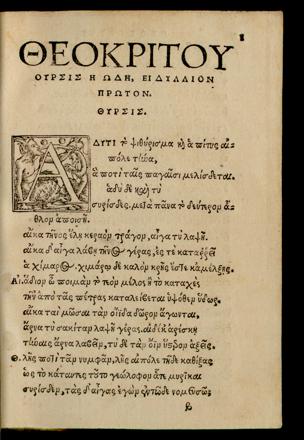 1
ΘΕΟΚΡΙΤΟΥ
ΘΥΡΣΙΣ Η ΩΔΗ, ΕΙΔΥΛΛΙΟΝ
ΠΡΩΤΟΝ.
ΘΥΡΣΙΣ.
ΑΔΥ ΤΙ τὸ ψιθύρισμα καὶ ἁ πίτυς αἰ
πόλε τήνα,
ἁ ποτὶ ταῖς παγαῖσι μελίσδεται.
ἁδὺ δὲ καὶ τὺ
συρίσδες. μετὰ πᾶνα τὸ δεύτερον ἆ
θλον ἀποισῇ.
αἴκα τῆνος ἕλῃ κεραὸν τράγον, αἶγα τὺ λαψῇ.
αἴκα δ' αἶγα λάβῃ τῆνος γέρας, ἐς τὲ καταρρεῖ
ἁ χίμαρος. χιμάρω δὲ καλὸν κρῆς ἔστε κ' ἀμέλξῃς.
Αἰ. ἅδιον ὦ ποιμὰν τὸ τεὸν μέλος ἢ τὸ καταχὲς
τῆν' ἀπὸ τᾶς πέτρας καταλείβεται ὑψόθεν ὕδωρ.
αἴκα ταὶ μῶσαι τὰν οἴϊδα δῶρον ἄγωνται,
ἄρνα τὺ σακίταν λαψῇ γέρας. αἰ δέ κ' ἀρέσκῃ
τήναις ἄρνα λαβεῖν, τὺ δὲ τὰν ὄϊν ὕστερον ἀξεῖς.
Θ. λῇς ποτὶ τᾶν νυμφᾶν, λῇς αἰπόλε τῇδε καθίξας
ὡς τὸ κάταντες τοῦτο γεώλοφον ᾇπε μυρῖκαι
συρίσδεν, τὰς δ' αἶγας ἐγὼν ἐν τῷδε νομευσῶ;